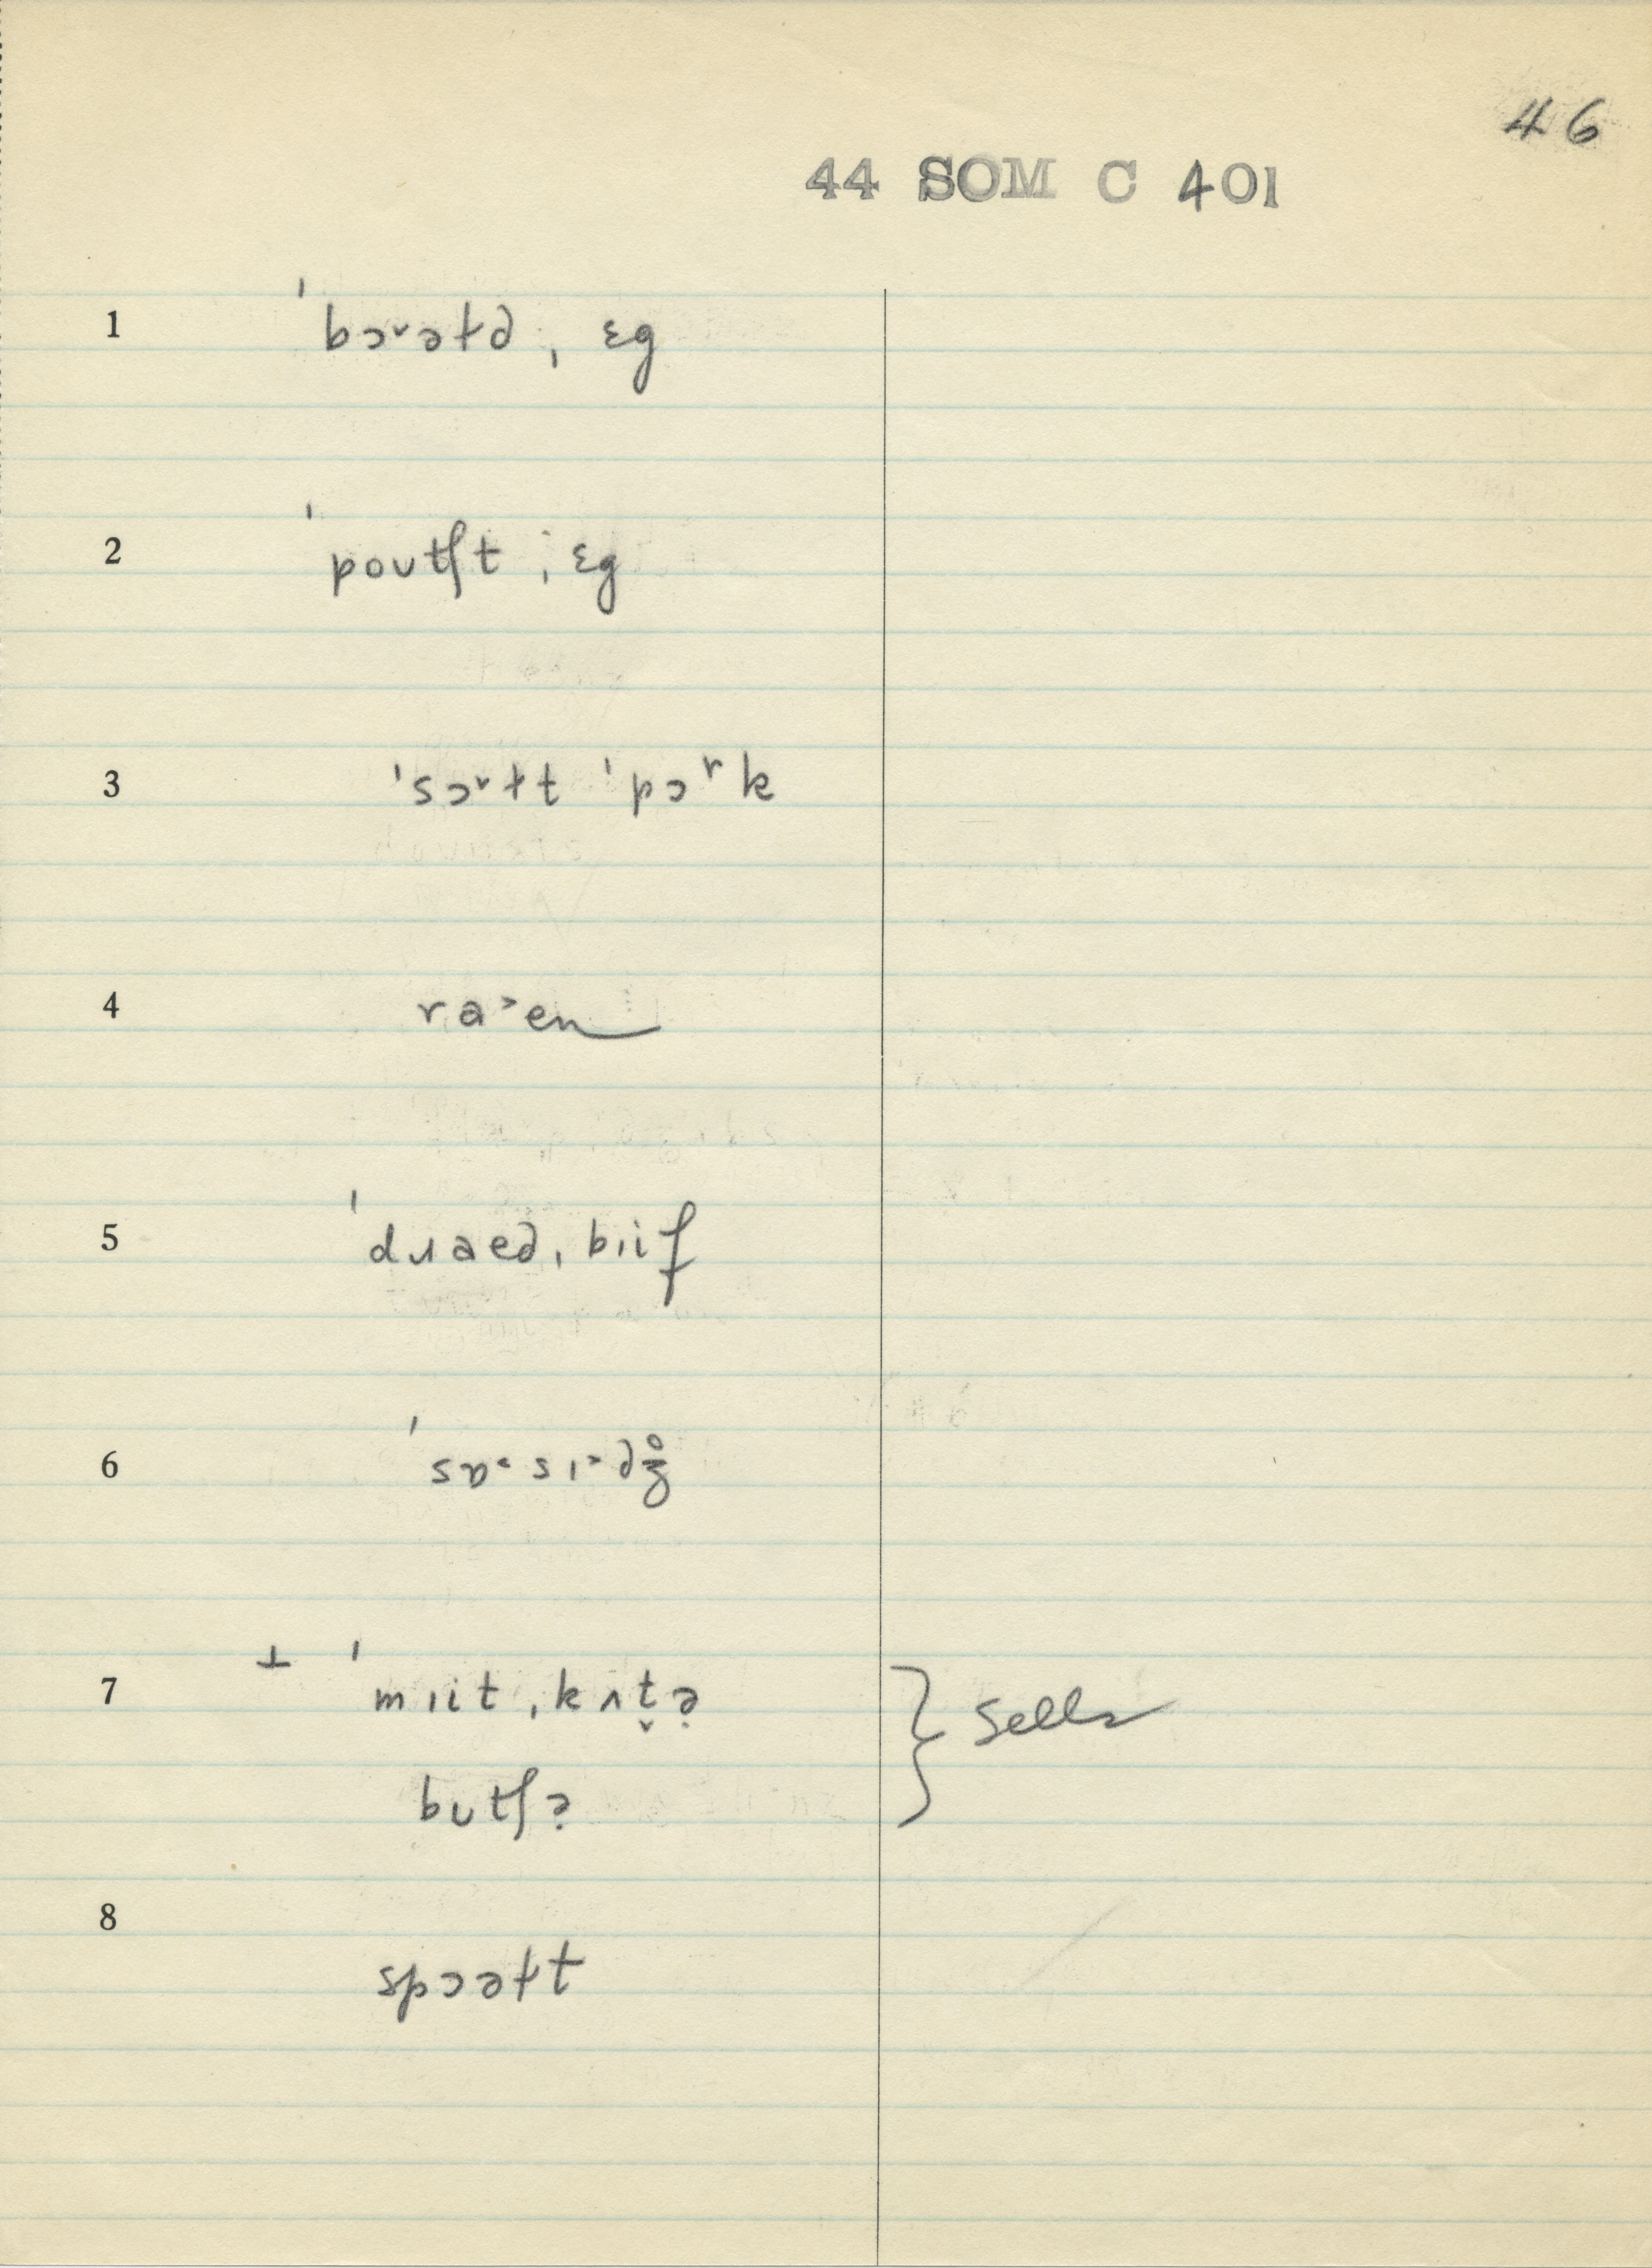 46
44 SOM C 401
1 ˈbɔ˞əɫd̥ ˌɛg
2 ˈpoʊtʃt ˌɛg
3 ˈsɔ˞ɫt ˈpɔʳk
4 ra˃en
5 ˈdɹaed̥ ˌbɪif
6 ˈsɒ˂sɪ˃dʒ̊
7 ⊥ ˈmɪit ˌkʌt̬ə̣ } sells
bʊtʃə̣
8 spɔəɫt